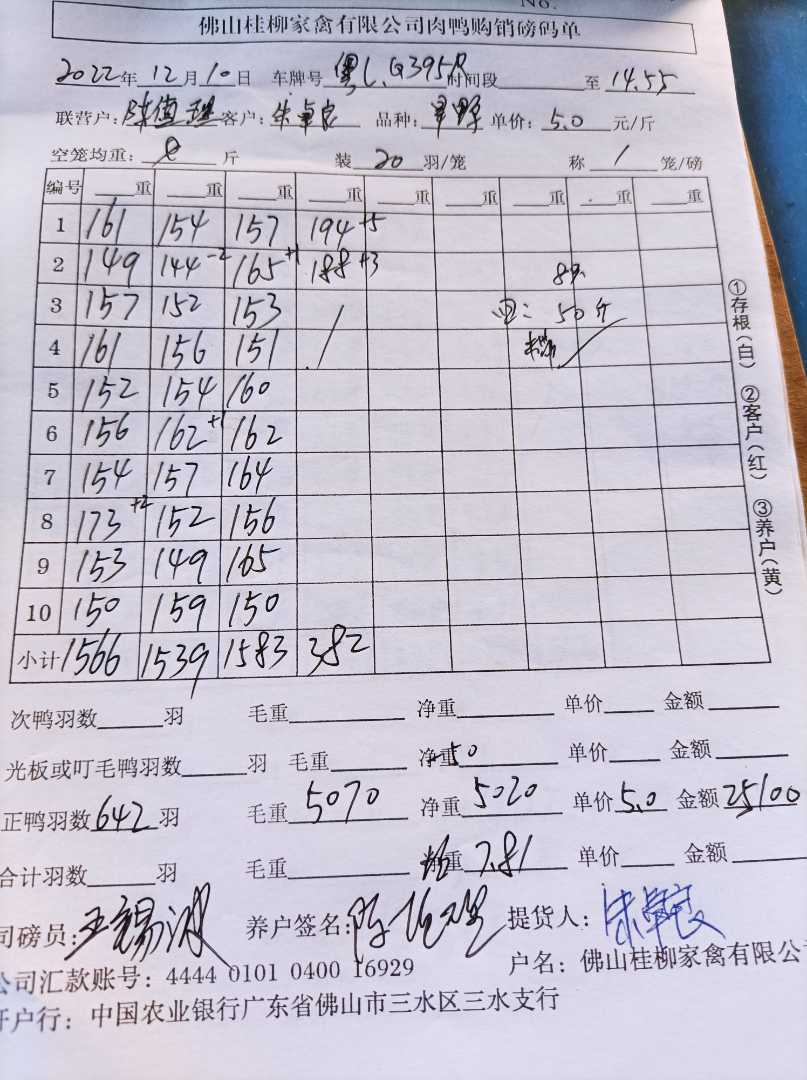 No.
佛山桂柳家禽有限公司肉鸭购销磅码单
2022年12月10日 车牌号粤L.Q395R时间段 至14.55
联营户:陈值理 客户:朱卓良 品种: 单价:5.0元/斤
空笼均重: 斤 装20羽/笼 称1笼/磅
编号 重 重 重 重 重 重 重 重 重
1 161 154 157 194+5
2 149 144-2 165+1 188+3 8只
3 157 152 153 / 50斤
4 161 156 151 /
5 152 154 160
6 156 162+1 162
7 154 157 164
8 173+2 152 156
9 153 149 165
10 150 159 150
小计 1566 1539 1583 382
①存根(白) ②客户(红) ③养户(黄)
次鸭羽数 羽 毛重 净重 单价 金额
光板或叮毛鸭羽数 羽 毛重 净重-50 单价 金额
正鸭羽数642羽 毛重5070 净重5020 单价5.0 金额25100
合计羽数 羽 毛重 重7.81 单价 金额
司磅员:王锡波 养户签名: 提货人:朱卓良
公司汇款账号:4444 0101 0400 16929 户名:佛山桂柳家禽有限公
开户行:中国农业银行广东省佛山市三水区三水支行